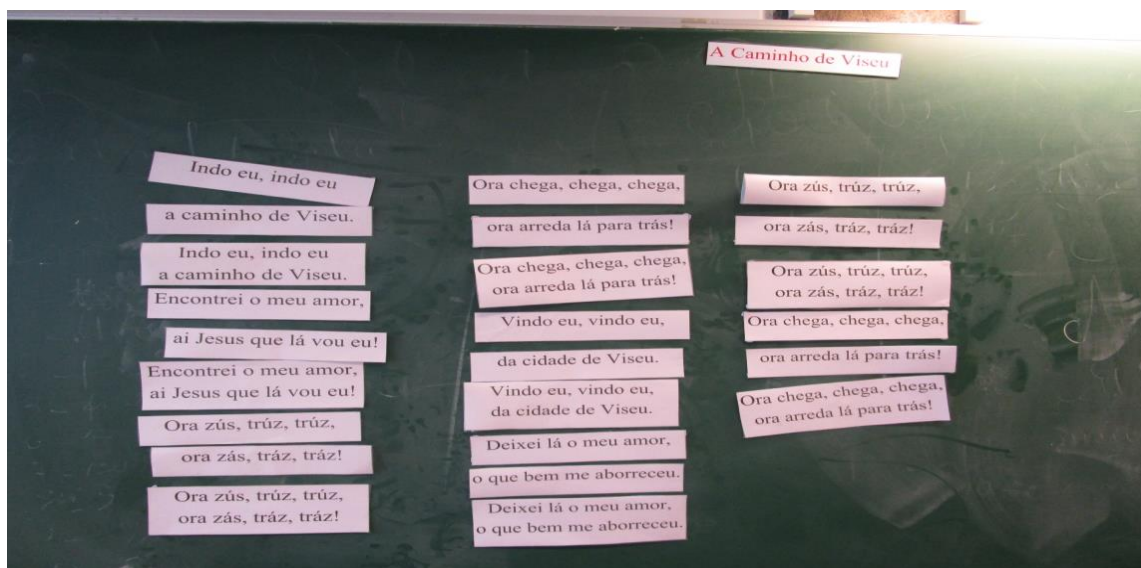 A Caminho de Viseu
Indo eu, indo eu
a caminho de Viseu.
Indo eu, indo eu
a caminho de Viseu.
Encontrei o meu amor,
ai Jesus que lá vou eu!
Encontrei o meu amor,
ai Jesus que lá vou eu!
Ora zús, trúz, trúz,
ora zás, tráz, tráz!
Ora zús, trúz, trúz,
ora zás, tráz, tráz!
Ora chega, chega, chega,
ora arreda lá para trás!
Ora chega, chega, chega,
ora arreda lá para trás!
Vindo eu, vindo eu,
da cidade de Viseu.
Vindo eu, vindo eu,
da cidade de Viseu.
Deixei lá o meu amor,
o que bem me aborreceu.
Deixei lá o meu amor,
o que bem me aborreceu.
Ora zús, trúz, trúz,
ora zás, tráz, tráz!
Ora zús, trúz, trúz,
ora zás, tráz, tráz!
Ora chega, chega, chega,
ora arreda lá para trás!
Ora chega, chega, chega,
ora arreda lá para trás!